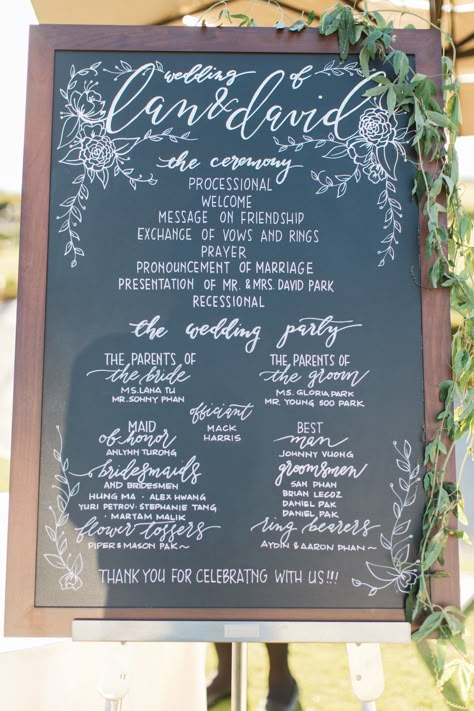 wedding of
lan & david
the ceremony
PROCESSIONAL
WELCOME
MESSAGE ON FRIENDSHIP
EXCHANGE OF VOWS AND RINGS
PRAYER
PRONOUNCEMENT OF MARRIAGE
PRESENTATION OF MR. & MRS. DAVID PARK
RECESSIONAL
the wedding party
THE PARENTS OF
the bride
MS. LANA TU
MR. SONNY PHAN
THE PARENTS OF
the groom
MS. GLORIA PARK
MR. YOUNG SOO PARK
officiant
MACK
HARRIS
MAID
of honor
ANLYNN TURONG
BEST
man
JOHNNY VUONG
bridesmaids
AND BRIDESMEN
HUNG MA · ALEX HWANG
YURI PETROV · STEPHANIE TANG
· MARYAM MALIK
groomsmen
SAM PHAN
BRIAN LECOZ
DANIEL PAK
DANIEL PARK
flower tossers
PIPER & MASON PAK ~
ring bearers
AYDIN & AARON PHAN ~
THANK YOU FOR CELEBRATNG WITH US!!!